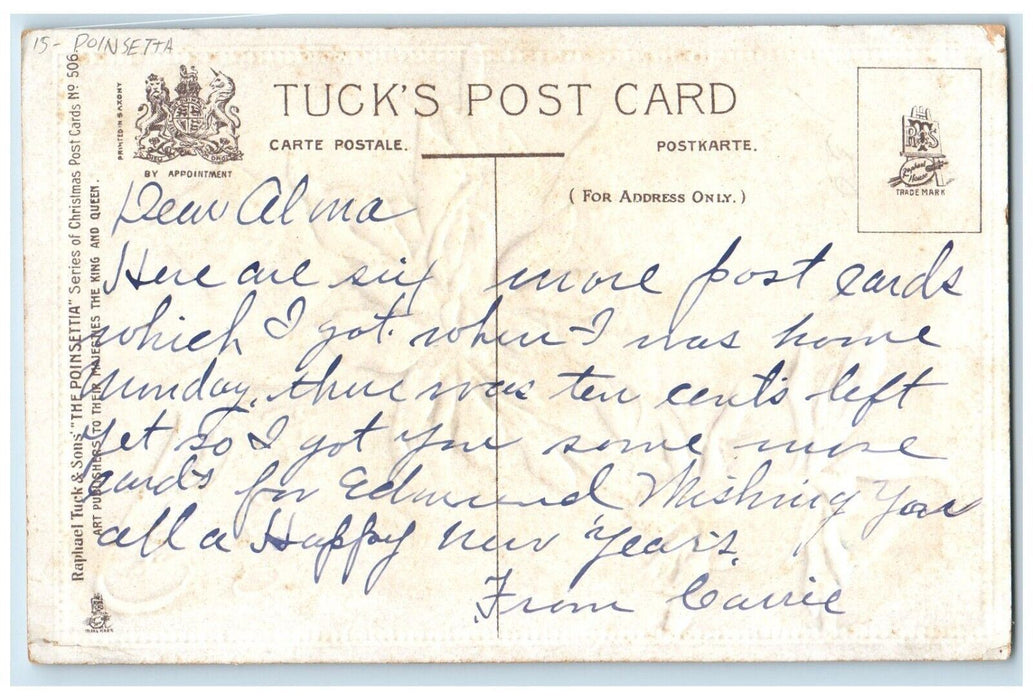 15- POINSETTA
TUCK'S POST CARD
CARTE POSTALE.
POSTKARTE.
(FOR ADDRESS ONLY.)
PRINTED IN SAXONY
BY APPOINTMENT
TRADE MARK
Raphael Tuck & Sons' "THE POINSETTIA" Series of Christmas Post Cards No 506.
ART PUBLISHERS TO THEIR MAJESTIES THE KING AND QUEEN.
Dear Alma
Here are six more post cards
which I got when I was home
Sunday, there was ten cents left
yet so I got you some more
cards for Edmund Wishing You
all a Happy New Year's.
From Carrie
TRADE MARK